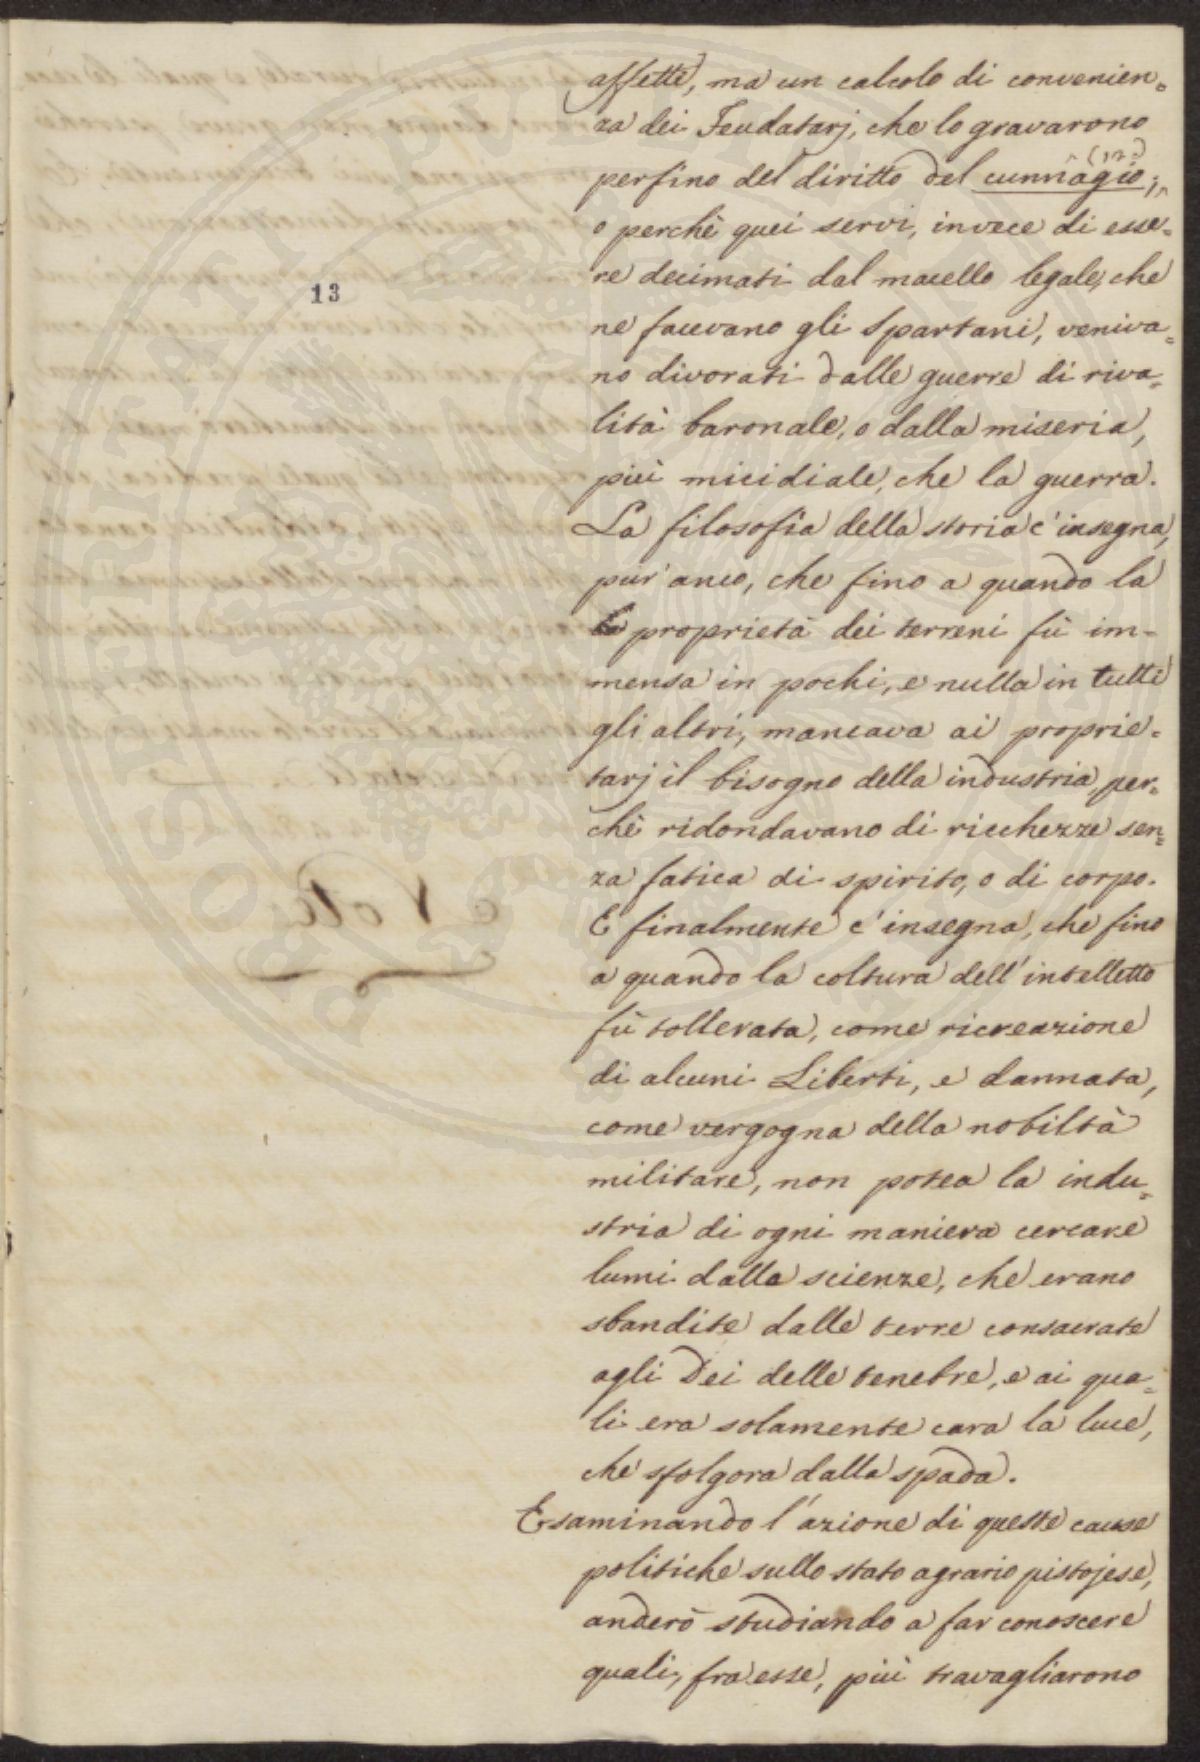 affetti, ma un calcolo di convenien=
za dei Feudatarj, che lo gravarono
perfino del diritto del cunnagio;
o perchè quei servi, invece di esse=
re decimati dal macello legale, che
13
ne facevano gli Spartani, veniva=
no divorati dalle guerre di riva=
lità baronale, o dalla miseria,
più micidiale, che la guerra.
La filosofia della storia c'insegna,
pur'anco, che fino a quando la
proprietà dei terreni fù im=
mensa in pochi, e nulla in tutti
gli altri, mancava ai proprie=
tarj il bisogno della industria, per=
chè ridondavano di ricchezze sen=
za fatica di spirito, o di corpo.
E finalmente c'insegna, che fino
a quando la coltura dell'intelletto
fù tollerata, come ricreazione
di alcuni Liberti, e dannata,
come vergogna della nobiltà
militare, non potea la indu=
stria di ogni maniera cercare
lumi dalle scienze, che erano
sbandite dalle terre consacrate
agli Dei delle tenebre, e ai qua=
li era solamente cara la luce,
che sfolgora dalla spada.
Esaminando l'azione di queste cause
politiche sullo stato agrario pistojese,
anderò studiando a far conoscere
quali, fra esse, più travagliarono